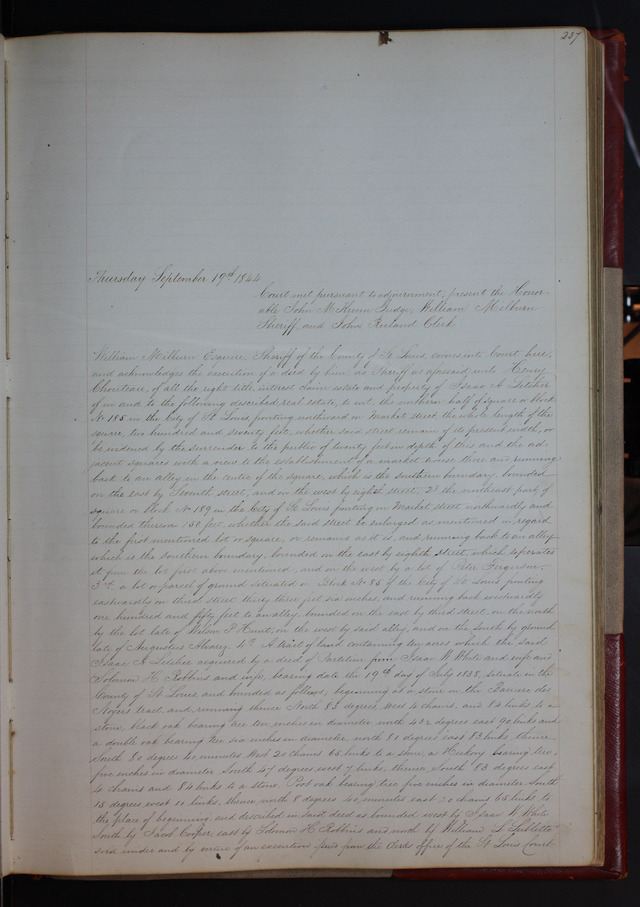 237
Thursday September 19th 1844
Court met pursuant to adjournment, present the Honor-
able John M. Krum Judge, William Milburn
Sheriff and John Ruland Clerk
William Milburn Esquire, Sheriff of the County of St Louis, comes into Court here,
and acknowledges the execution of a deed by him as Sheriff as aforesaid unto Henry
Chouteau, of all the right title interest claim estate and property of Isaac A. Letcher
of in and to the following described real estate, to wit, the northern half of square or block
No 185 in the City of St Louis fronting northward on Market street the whole length of the
square, two hundred and seventy feet, whether said street remain of its present width, or
be widened by the surrender to the public of twenty feet in depth of this and the ad-
jacent squares with a view to the establishment of a market house there and running
back to an alley in the centre of the square, which is the southern boundary, bounded
on the east by Seventh street, and on the west by eighth street, 2d the northeast part of
square or block No 189 in the City of St Louis fronting on Market street northwardly and
bounded thereon 150 feet, whether the said street be enlarged as mentioned in regard
to the first mentioned lot or square, or remains as it is, and running back to an alley
which is the southern boundary, bounded on the east by eighth street, which seperates
it from the lot first above mentioned, and on the west by a lot of Peter Ferguson.
3rd, a lot or parcel of ground situated in Block No 85 of the City of St Louis fronting
eastwardly on third street thirty three feet six inches, and running back westwardly
one hundred and fifty feet to an alley, bounded on the east by third street, on the north
by the lot late of Wilson P. Hunt, on the west by said alley, and on the south by ground
late of Augustus Alvarez. 4th A tract of land containing ten acres which the said
Isaac A Letcher acquired by a deed of Partition from Isaac W White and wife and
Solomon H. Robbins and wife, bearing date the 19th day of July 1838, situate in the
County of St Louis and bounded as follows, beginning at a stone on the Barriere des
Noyers tract, and running thence North 83 degrees west 4 chains, and 84 links to a
stone, black oak bearing tree ten inches in diameter north 42½ degrees east 90 links and
a double oak bearing tree six inches in diameter, north 81 degrees east 83 links thence
South 8 degrees 40 minutes West 20 chains 65 links to a stone, a Hickory bearing tree,
five inches in diameter South 47 degrees west 7 links, thence, South 83 degrees east
4 chains and 84 links to a stone, Post oak bearing tree five inches in diameter South
15 degrees west 10 links, thence north 8 degrees 40 minutes east 20 chains 65 links to
the place of beginning, and described in said deed as bounded west by Isaac W White
South by Jacob Cooper, east by Solomon H. Robbins and north by William L Sublette
sold under and by virtue of an execution issued from the Clerks office of the St Louis Court